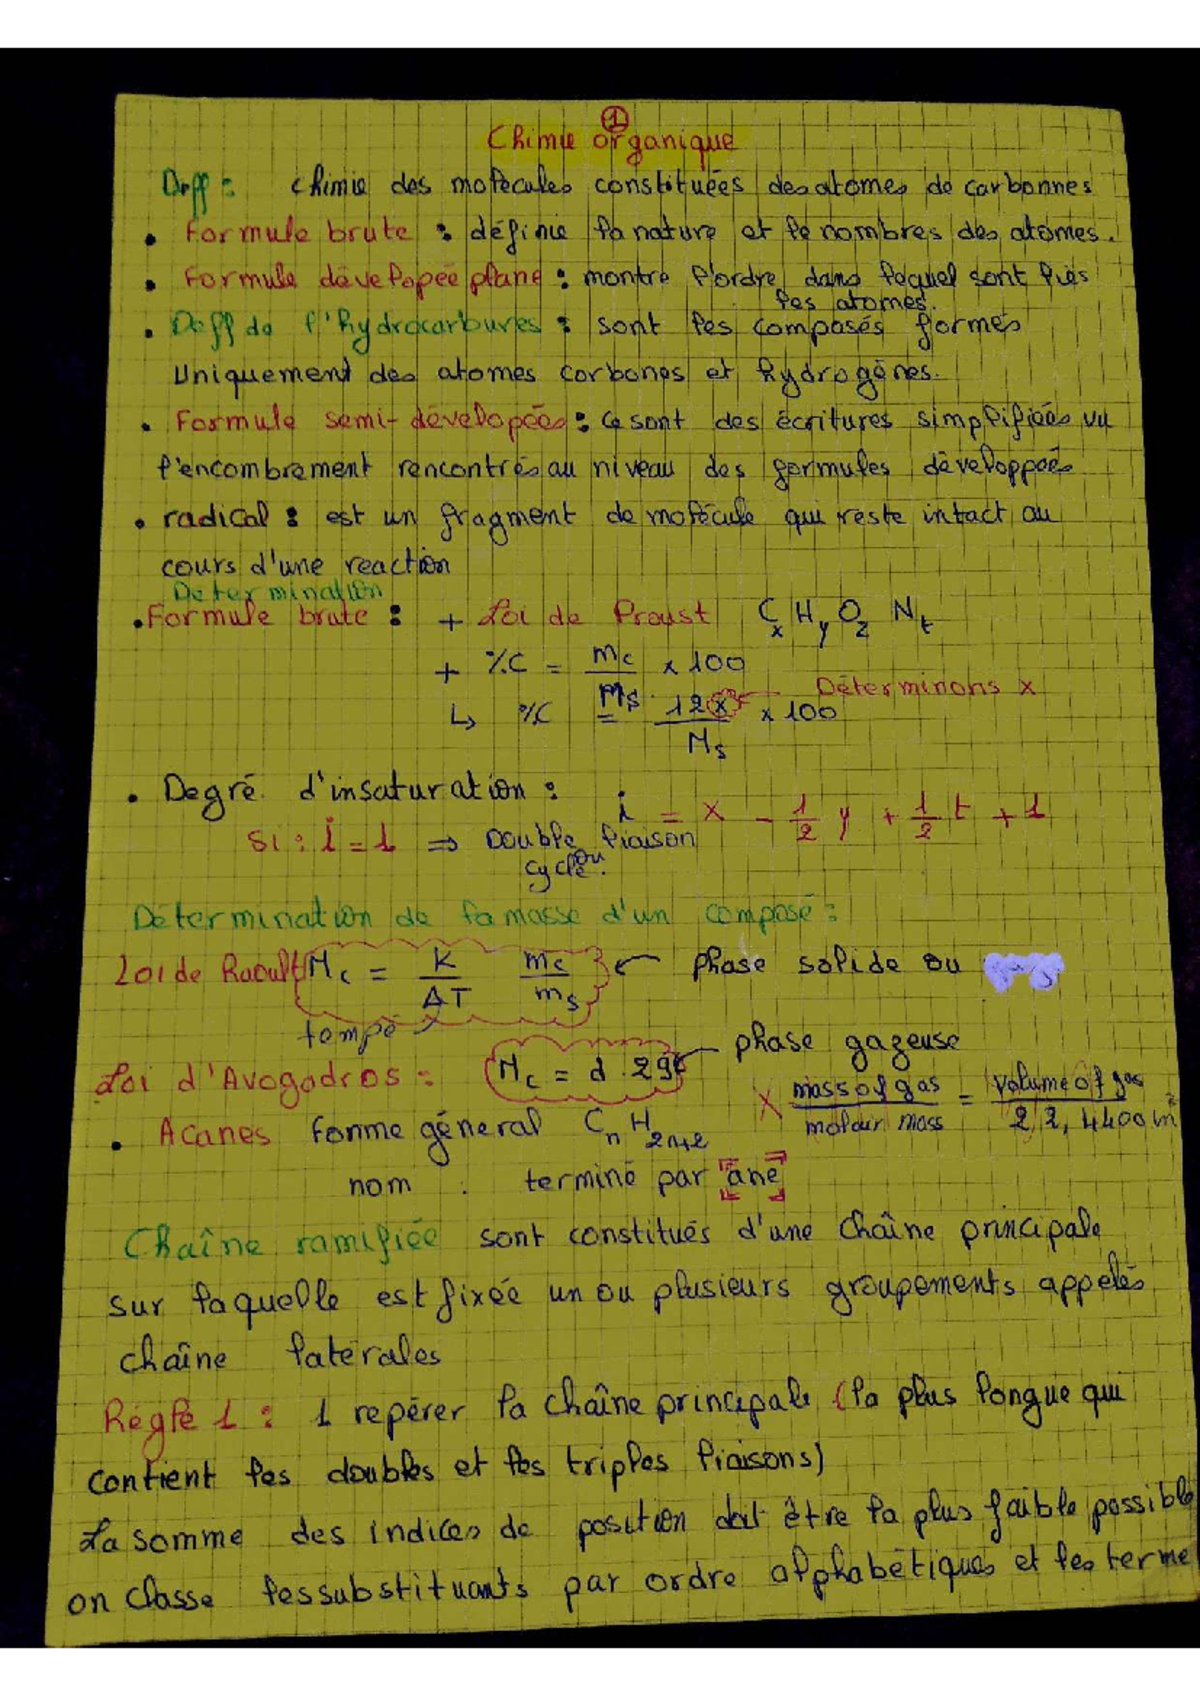 ①
Chimie organique
Deff : chimie des molécules constituées des atomes de carbonnes
• Formule brute : définie la nature et le nombres des atomes.
• Formule dévelopée plane : montre l'ordre dans lequel sont liés
les atomes.
• Deff de l'hydrocarbures : sont les composés formés
Uniquement des atomes carbones et hydrogènes.
• Formule semi-dévelopées : ce sont des écritures simplifiées vu
l'encombrement rencontrés au niveau des formules développés
• radical : est un fragment de molécule qui reste intact au
cours d'une reaction
Determination
• Formule brute : + Loi de Proust CxHyOzNt
+ %C = mc / Ms x 100
↳ %C = 12x / Ms x 100 Déterminons x
• Degré d'insaturation : i = x - 1/2 y + 1/2 t + 1
Si : i = 1 ⇒ Double liaison
ou
cycle.
Détermination de la masse d'un composé :
Loi de Raoult Mc = K/ΔT mc/ms ← phase solide ou
tempé
Loi d'Avogadros : Mc = d . 29 ← phase gazeuse
x mass of gas / molaur mass = volume of gas / 22,4400 m
• Acanes Forme géneral CnH2n+2
nom : terminé par "ane"
Chaîne ramifiée sont constitués d'une chaîne principale
sur laquelle est fixée un ou plusieurs groupements appelés
chaîne latérales
Régle 1 : 1 repérer la chaîne principale (la plus longue qui
contient les doubles et les triples liaisons)
La somme des indices de position doit être la plus faible possible
on classe les substituants par ordre alphabétiques et les terme